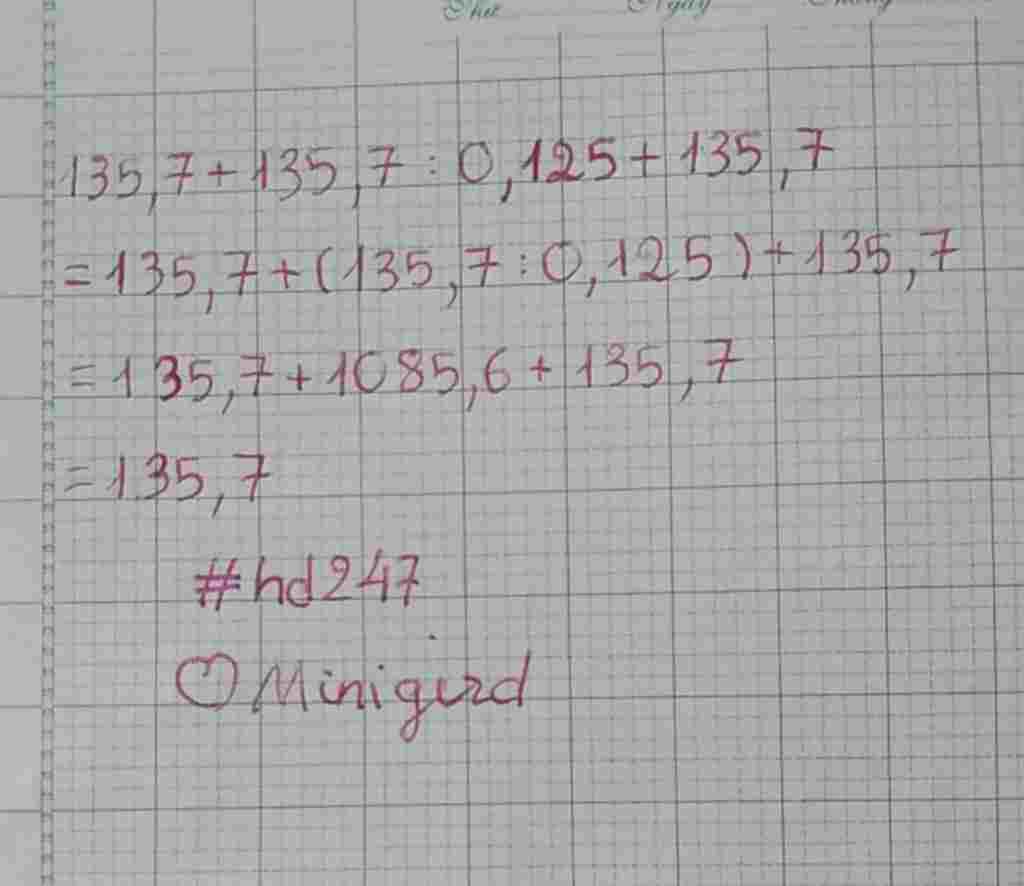 135,7 + 135,7 : 0,125 + 135,7
= 135,7 + (135,7 : 0,125) + 135,7
= 135,7 + 1085,6 + 135,7
= 135,7
#hd247